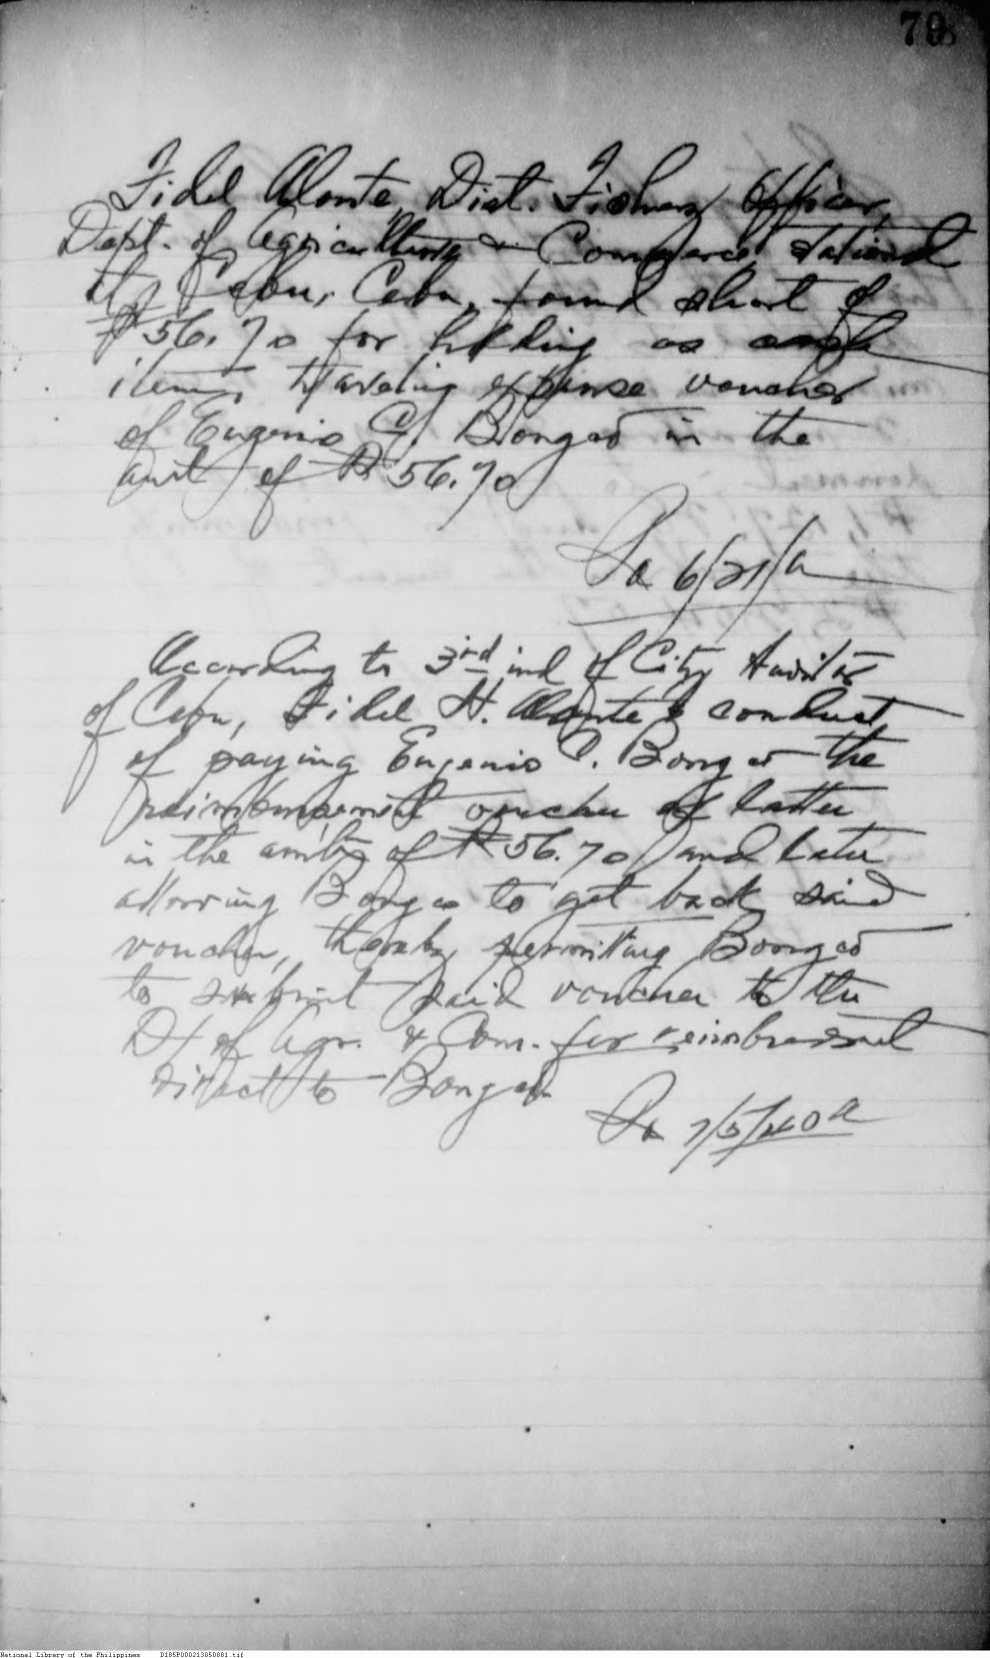 79
Fidel Alante, Dist. Fishery Officer,
Dept. of Agriculture & Commerce, stationed
at Cebu, Cebu, found short of
₱56.70 for holding as cash
items, traveling expense voucher
of Eugenio C. Bongao in the
amt of ₱56.70
6/21/
According to 3rd ind of City Auditor
of Cebu, Fidel H. Alante's conduct
of paying Eugenio C. Bongao the
reimbursement voucher of latter
in the amt of ₱56.70 and later
allowing Bongao to get back said
voucher, thereby permitting Bongao
to submit said voucher to the
Dt of Agr. & Com. for reimbursement
direct to Bongao.
7/5/40
National Library of the Philippines D185P000213850881.tif